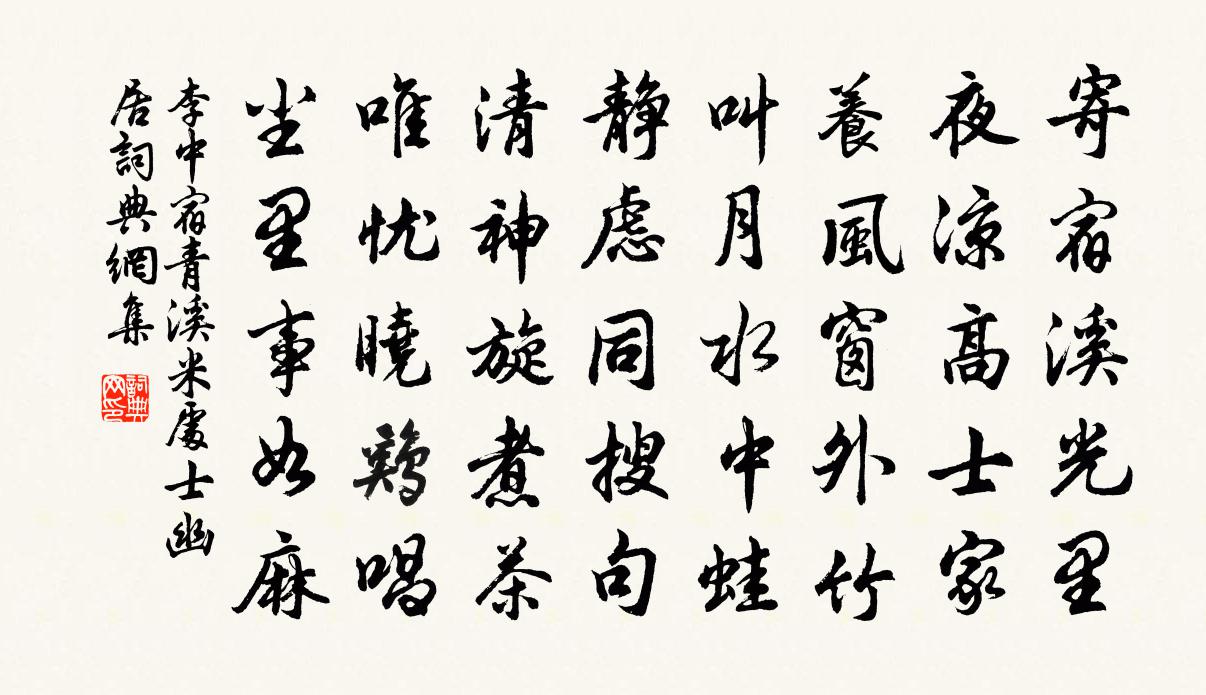 寄宿溪光里
夜涼高士家
養風窗外竹
叫月水中蛙
靜慮同搜句
清神旋煮茶
唯忧曉鷄唱
尘里事如麻
李中宿青溪米處士幽
居詞典網集
詞典
网印